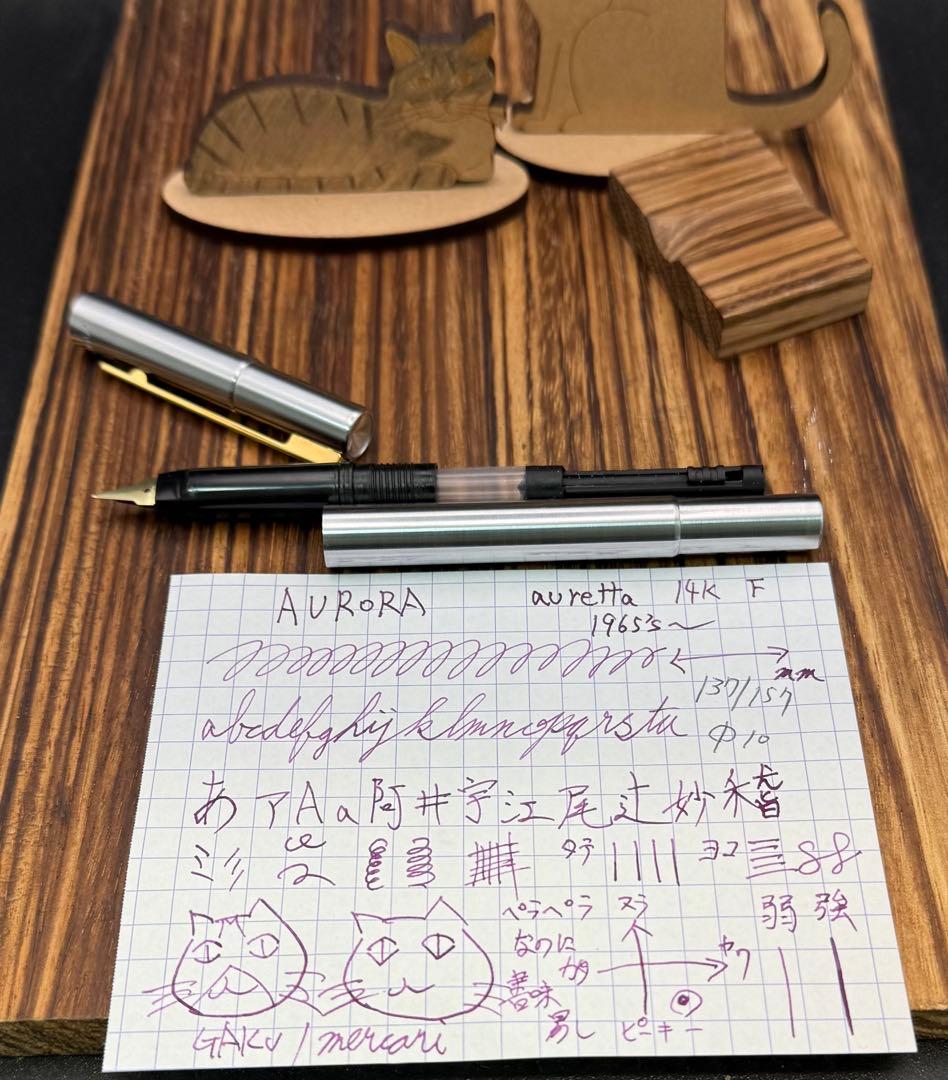 AURORA auretta 14K F
1965's~
mm
137/157
abcdefghijklmnopqrstu
Φ10
あアAa阿井宇江尾辻妙稽
タテ ヨコ
ペラペラ ヌラ 弱 強
なのに
カタ カタ
味
ピーキー
GAKU / mercari